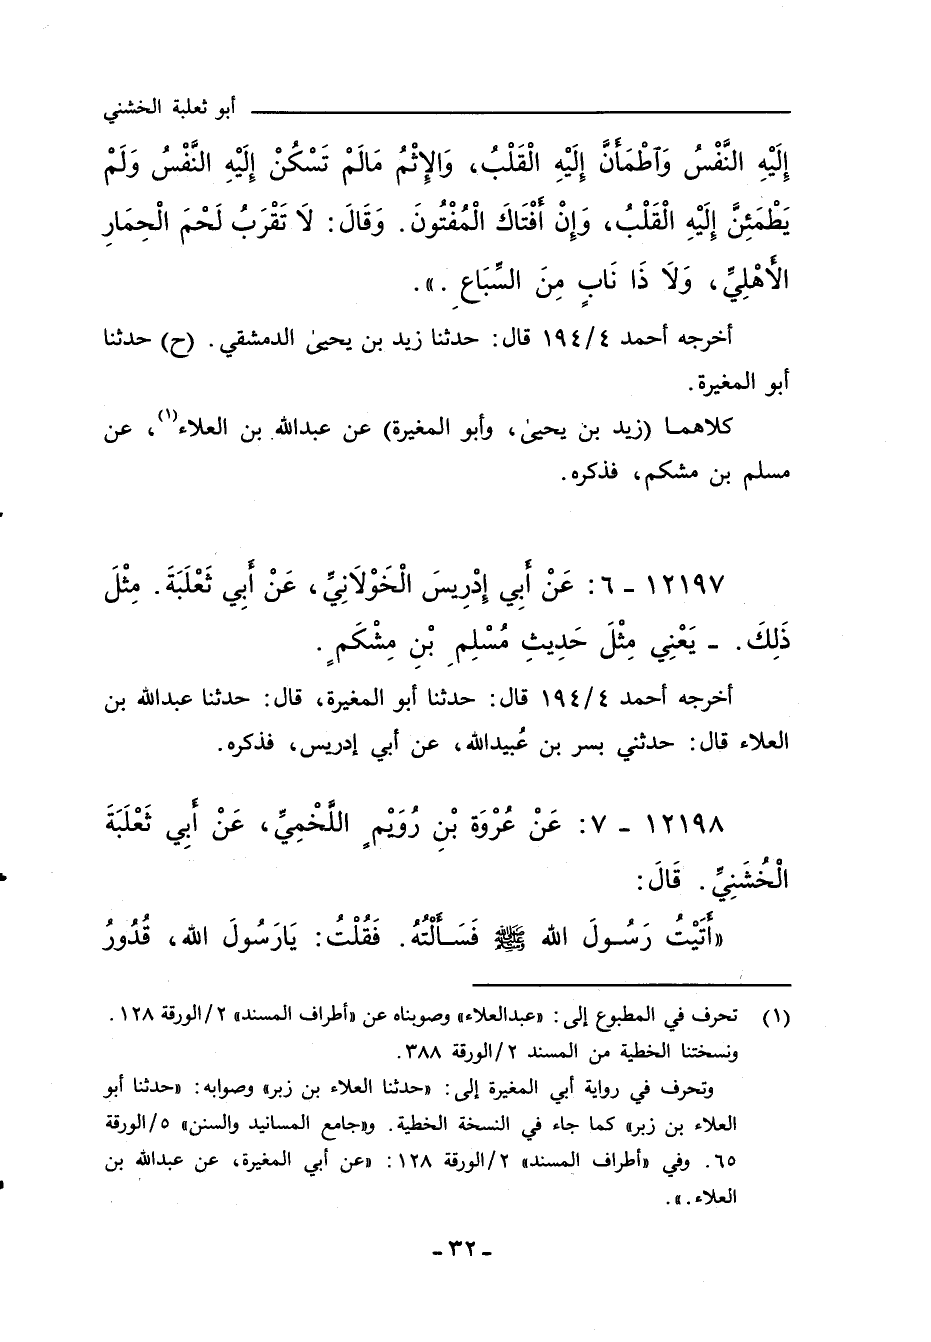 أبو ثعلبة الخشني
إِلَيْهِ النَّفْسُ وَٱطْمَأَنَّ إِلَيْهِ الْقَلْبُ، وَالإِثْمُ مَالَمْ تَسْكُنْ إِلَيْهِ النَّفْسُ وَلَمْ
يَطْمَئِنَّ إِلَيْهِ الْقَلْبُ، وَإِنْ أَفْتَاكَ الْمُفْتُونَ. وَقَالَ: لَا تَقْرَبُ لَحْمَ الْحِمَارِ
الأَهْلِيِّ، وَلَا ذَا نَابٍ مِنَ السِّبَاعِ.».
أخرجه أحمد ١٩٤/٤ قال: حدثنا زيد بن يحيىٰ الدمشقي. (ح) حدثنا
أبو المغيرة.
كلاهما (زيد بن يحيىٰ، وأبو المغيرة) عن عبدالله بن العلاء(١)، عن
مسلم بن مشكم، فذكره.
١٢١٩٧ - ٦: عَنْ أَبِي إِدْرِيسَ الْخَوْلَانِيِّ، عَنْ أَبِي ثَعْلَبَةَ. مِثْلَ
ذَلِكَ. - يَعْنِي مِثْلَ حَدِيثِ مُسْلِمِ بْنِ مِشْكَمٍ.
أخرجه أحمد ١٩٤/٤ قال: حدثنا أبو المغيرة، قال: حدثنا عبدالله بن
العلاء قال: حدثني بسر بن عُبيدالله، عن أبي إدريس، فذكره.
١٢١٩٨ - ٧: عَنْ عُرْوَةَ بْنِ رُوَيْمٍ اللَّخْمِيِّ، عَنْ أَبِي ثَعْلَبَةَ
الْخُشَنِيِّ. قَالَ:
«أَتَيْتُ رَسُولَ الله ﷺ فَسَأَلْتُهُ. فَقُلْتُ: يَارَسُولَ الله، قُدُورُ
(١) تحرف في المطبوع إلى: «عبدالعلاء» وصوبناه عن «أطراف المسند» ٢/الورقة ١٢٨.
ونسختنا الخطية من المسند ٢/الورقة ٣٨٨.
وتحرف في رواية أبي المغيرة إلى: «حدثنا العلاء بن زبر» وصوابه: «حدثنا أبو
العلاء بن زبر» كما جاء في النسخة الخطية. و«جامع المسانيد والسنن» ٥/الورقة
٦٥. وفي «أطراف المسند» ٢/الورقة ١٢٨: «عن أبي المغيرة، عن عبدالله بن
العلاء.».
- ٣٢ -